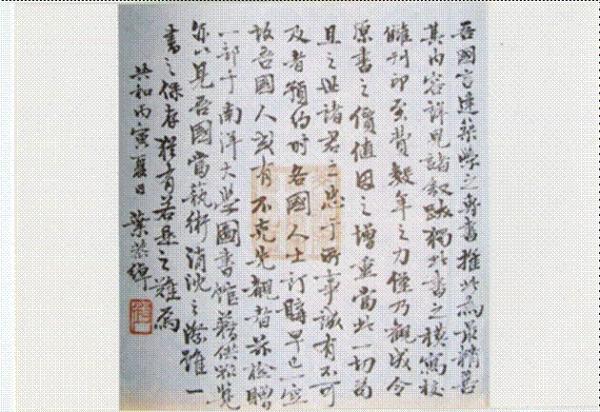 吾國言建築學之專書推此為最精善
其內容詳見諸敘跋獨此書之模寫校
讎刊印至費數年之力僅乃觀成令
原書之價值因之增重當此一切苟
且之世諸君之忠于所事誠有不可
及者預約時各國人士訂購早已一空
故吾國人或有不克先觀者茲撿贈
一部于南洋大學圖書館藉供眾覽
亦以見吾國當藝術消沈之際雖一
書之保存猶有若是之難焉
共和丙寅夏日 葉恭綽